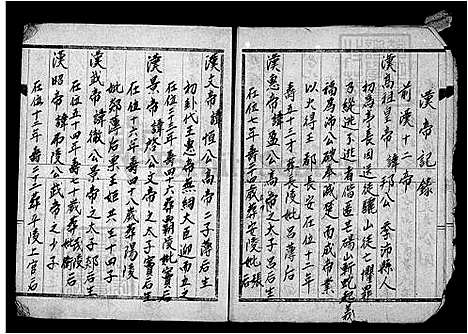 漢帝記錄
前漢十二帝
漢高祖皇帝 諱邦公 季沛縣人
初為亭長因送徒驪山徒亡懼罪
乃縱之逃者偕匿芒碭山斬蛇起義
福為沛公破秦滅楚而成帝業
以火得王 都長安 在位十二年
壽五十三才葬長陵 妣呂薄后
漢惠帝 諱盈公 高帝太子 呂后生
在位七年 壽二十四歲葬安陵 妣張
漢文帝 諱恒公 高帝二子 薄后生
初封代王惠帝無嗣大臣迎而立之
在位二十三年 壽四十六葬霸陵 妣竇后
漢景帝 諱啓公 文帝之子 竇后生
在位十六年 壽四十八歲葬陽陵
妣 薄后 王 共生十四子
漢武帝 諱徹公 景帝之太子 后生
在位五十四年 壽七十歲葬茂陵 妣衛后
漢昭帝 諱弗陵公 武帝之少子
在位十三年 壽二十三葬平陵 上官后